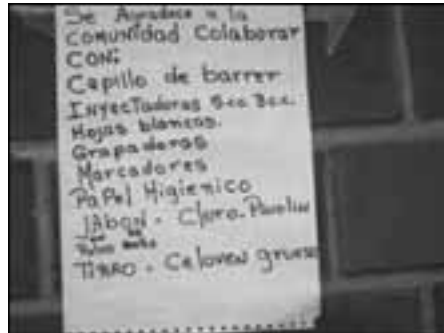 Se Agradece a la
COMUNIDAD Colaborar
CON:
Cepillo de barrer
INYECTADORAS 5cc 3cc.
Hojas blancas.
Grapadoras
Marcadores
PaPel Higienico
JAbon - Cloro.
TIRRO - Celoven grueso